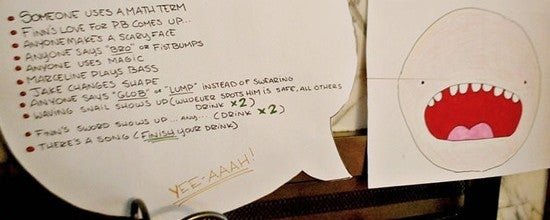 SOMEONE USES A MATH TERM
FINN'S LOVE FOR P.B. COMES UP...
ANYONE MAKES A SCARY FACE
ANYONE SAYS "BRO" OR FISTBUMPS
ANYONE USES MAGIC
MARCELINE PLAYS BASS
JAKE CHANGES SHAPE
ANYONE SAYS "GLOB" OR "LUMP" INSTEAD OF SWEARING
WAVING SNAIL SHOWS UP (WHOEVER SPOTS HIM IS SAFE, ALL OTHERS
DRINK x2)
FINN'S SWORD SHOWS UP... (DRINK x2)
THERE'S A SONG (FINISH YOUR DRINK)
YEE-AAAH!